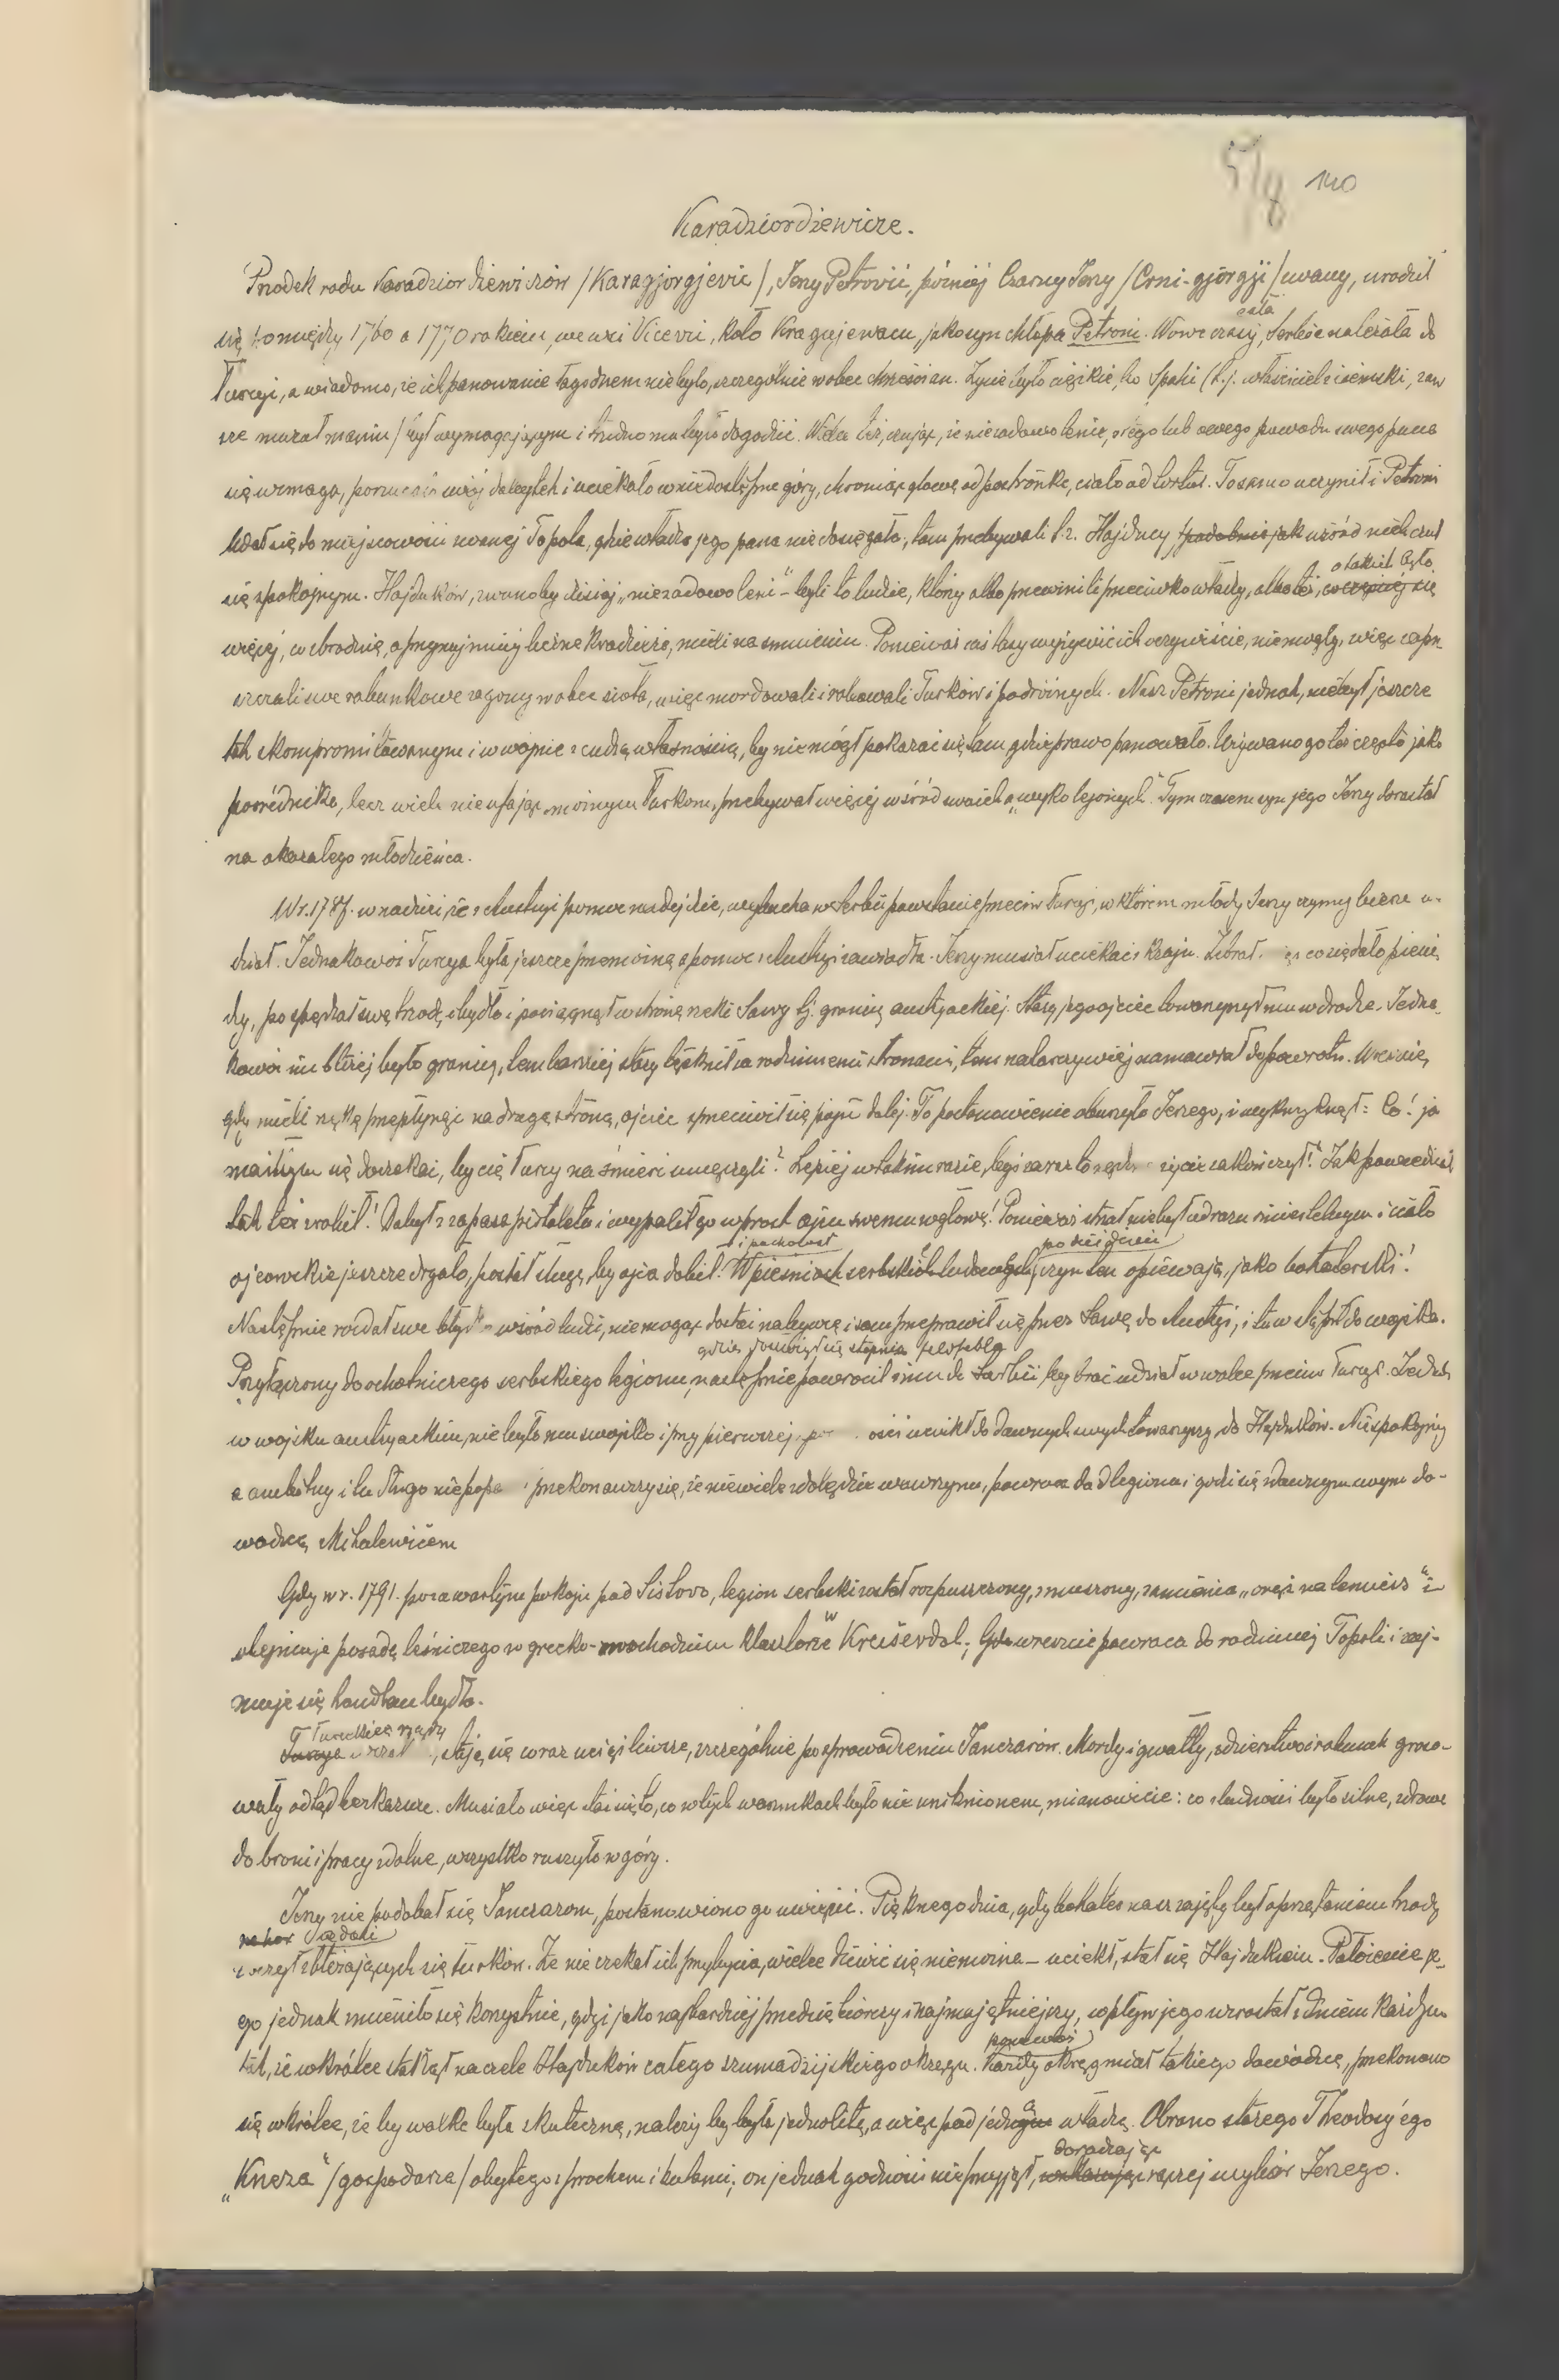 140
Karadziordziewicze.
Przodek rodu Karadziordziewiczów /Karagjorgjevic/, Jerzy Petrović, później Czarny Jerzy /Crni-gjorgji/ zwany, urodził
się pomiędzy 1760 a 1770 rokiem, we wsi Vicevzi, koło Kragujewacu, jako syn chłopa Petroni. Wówczas cała Serbie należała do
Turcyi, a wiadomo, że ich panowanie łagodnem nie było, szczególnie wobec chrześcian. Życie było ciężkie, bo Spahi (t.j. właściciel ziemski, zaw
sze muzułmanin/ był wymagającym i trudno mu było dogodzić. Wielu też, czując, że niezadowolenie, z tego lub owego powodu swego pana
się wzmaga, porzucało swój dobytek i uciekało w niedostępne góry, chroniąc głowę od postronka, ciało od tortur. To samo uczynił i Petroni
Udał się do miejscowości zwanej Topola, gdzie władza jego pana nie dosięgała; tam przebywali t.z. Hajducy, podobnie jak wśród nich czuł
się spokojnym. Hajduków, zwano by dzisiaj „niezadowoleni” – byli to ludzie, którzy albo przewinili przeciwko władzy, albo też, o takich było
więcej, co zbrodnię, a przynajmniej liczne kradzieże, mieli na sumieniu. Ponieważ zaś lasy wyżywić ich oczywiście, nie mogły, więc zapu
szczali swe rabunkowe zagony wobec sioła, więc mordowali i rabowali Turków i podróżnych. Nasz Petroni jednak, nie był jeszcze
tak skompromitowanym i w wojnie z cudzą własnością, by nie mógł pokazać się tam gdzie prawo panowało. Używano go też często jako
pośrednika, lecz wiele nie ufając możnym Turkom, przebywał więcej wśród swoich „wykolejonych”. Tymczasem syn jego Jerzy dorastał
na okazałego młodzieńca.
W r. 1787. w nadziei, że z Austryi pomoc nadejdzie, wybucha w Serbii powstanie przeciw Turcyi, w którem młody Jerzy czynny bierze u-
dział. Jednakowoż Turcya była jeszcze przemożną a pomoc z Austryi zawiodła. Jerzy musiał uciekać z kraju. Zebrał co się dało pienię
dzy, pospędzał swą trzodę, bydło i pociągnął w stronę rzeki Sawy tj. granicy austryackiej. Stary jego ojciec towarzyszył mu w drodze. Jedna
kowoż im bliżej było granicy, tem bardziej stary tęsknił za rodzinnemi stronami, tem natarczywiej namawiał do powrotu. Wreszcie,
gdy mieli rzekę przepłynąć na drugą stronę, ojciec sprzeciwił się pójść dalej. To postanowienie oburzyło Jerzego, i wykrzyknął: Co! ja
miałbym się doczekać, by cię Turcy na śmierć umęczyli? Lepiej w takim razie, byś zaraz tu życie zakończył! Jak powiedział
tak też zrobił! Dobył z zapasa pistoletu i wypalił go wprost ojcu swemu w głowę! Ponieważ strzał nie był odrazu śmiertelnym i ciało
ojcowskie jeszcze drgało, posłał sługę, by ojca dobił! i pachołast W pieśniach serbskich ludowych, po dziś dzień czyn ten opiewają, jako bohaterski!
Następnie rozdał swe bydło wśród ludzi, nie mogąc dostać nabywcę i sam przeprawił się przez Sawę do Austryi, i tu wstąpił do wojska.
gdzie dosłużył się stopnia feldfebla
Przyłączony do ochotniczego serbskiego legionu, następnie powrócił z nim do Serbii by brać udział w walce przeciw Turcyi. Jednak
w wojsku austryackim, nie było mu swojsko i przy pierwszej ości uciekł do dawnych swych towarzyszy, do Hajduków. Niespokojny
a ambitny i tu długo nie popa przekonawszy się, że niewiele zdobędzie wawrzynu, powraca do legionu i godzi się z dawnym swym do-
wódzcą Mihalewićem
Gdy w r. 1791. po zawartym pokoju pod Sistovo, legion serbski został rozpuszczony, zmuszony, zamienia „oręż na lemiesz” i
obejmuje posadę leśniczego w grecko-wschodnim klasztorze w Kruševdol; Gdy wreszcie powraca do rodzinnej Topoli i zaj-
muje się handlem bydła.
Tureckie rządy
stają się coraz uciążliwsze, szczególnie po sprowadzeniu Janczarów. Mordy i gwałty, zdzierstwo i rabunek graso-
wały odtąd bezkarnie. Musiało więc stać się to, co w tych warunkach było nie uniknionem, mianowicie: co z ludności było silne, zdrowe
do broni i pracy zdolne, wszystko ruszyło w góry.
Jerzy nie podobał się Janczarom, postanowiono go uwięzić. Pięknego dnia, gdy bohater nasz zajęty był oprzątaniem trzody
zoczył zbliżających się turków. Że nie czekał ich przybycia, wielce dziwić się nie można – uciekł, stał się Hajdukiem. Położenie je-
go jednak zmieniło się korzystnie, gdyż jako najbardziej przedsiębiorczy i najmajętniejszy, wpływ jego wzrastał z dniem każdym
tak, że wkrótce stał już na czele Hajduków całego szumadzijskiego okręgu. ponieważ Każdy okręg miał takiego dowódzcę, przekonano
się wkrótce, że by walka była skuteczną, należy by była jednolitą, a więc pod jedną władzą. Obrano starego Theodosy'ego
„Kneza” /gospodarza/ obytego z prochem i kulami; on jednak godności nie przyjął, doradzając raczej wybór Jerzego.